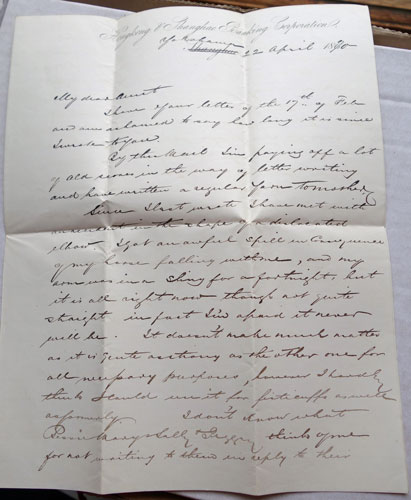 Hongkong & Shanghai Banking Corporation,
Yokohama
Shanghai 22 April 1890
My dear Aunt
I have your letter of the 17th of Feb
and am ashamed to say how long it is since
I wrote to you
By this mail I'm paying off a lot
of old scores in the way of letter writing
and have written a regular yarn to mother
Since I last wrote I have met with
an accident in the shape of a dislocated
elbow I got an awful spill in consequence
of my horse falling with me, and my
arm was in a sling for a fortnight but
it is all right now though not quite
straight in fact I'm afraid it never
will be. It doesn't make much matter
as it is quite as strong as the other one for
all necessary purposes, however I hardly
think I could use it for fisticuffs as well
as formerly I don't know what
Mary & Sally & thinks of me
for not writing to them in reply to their